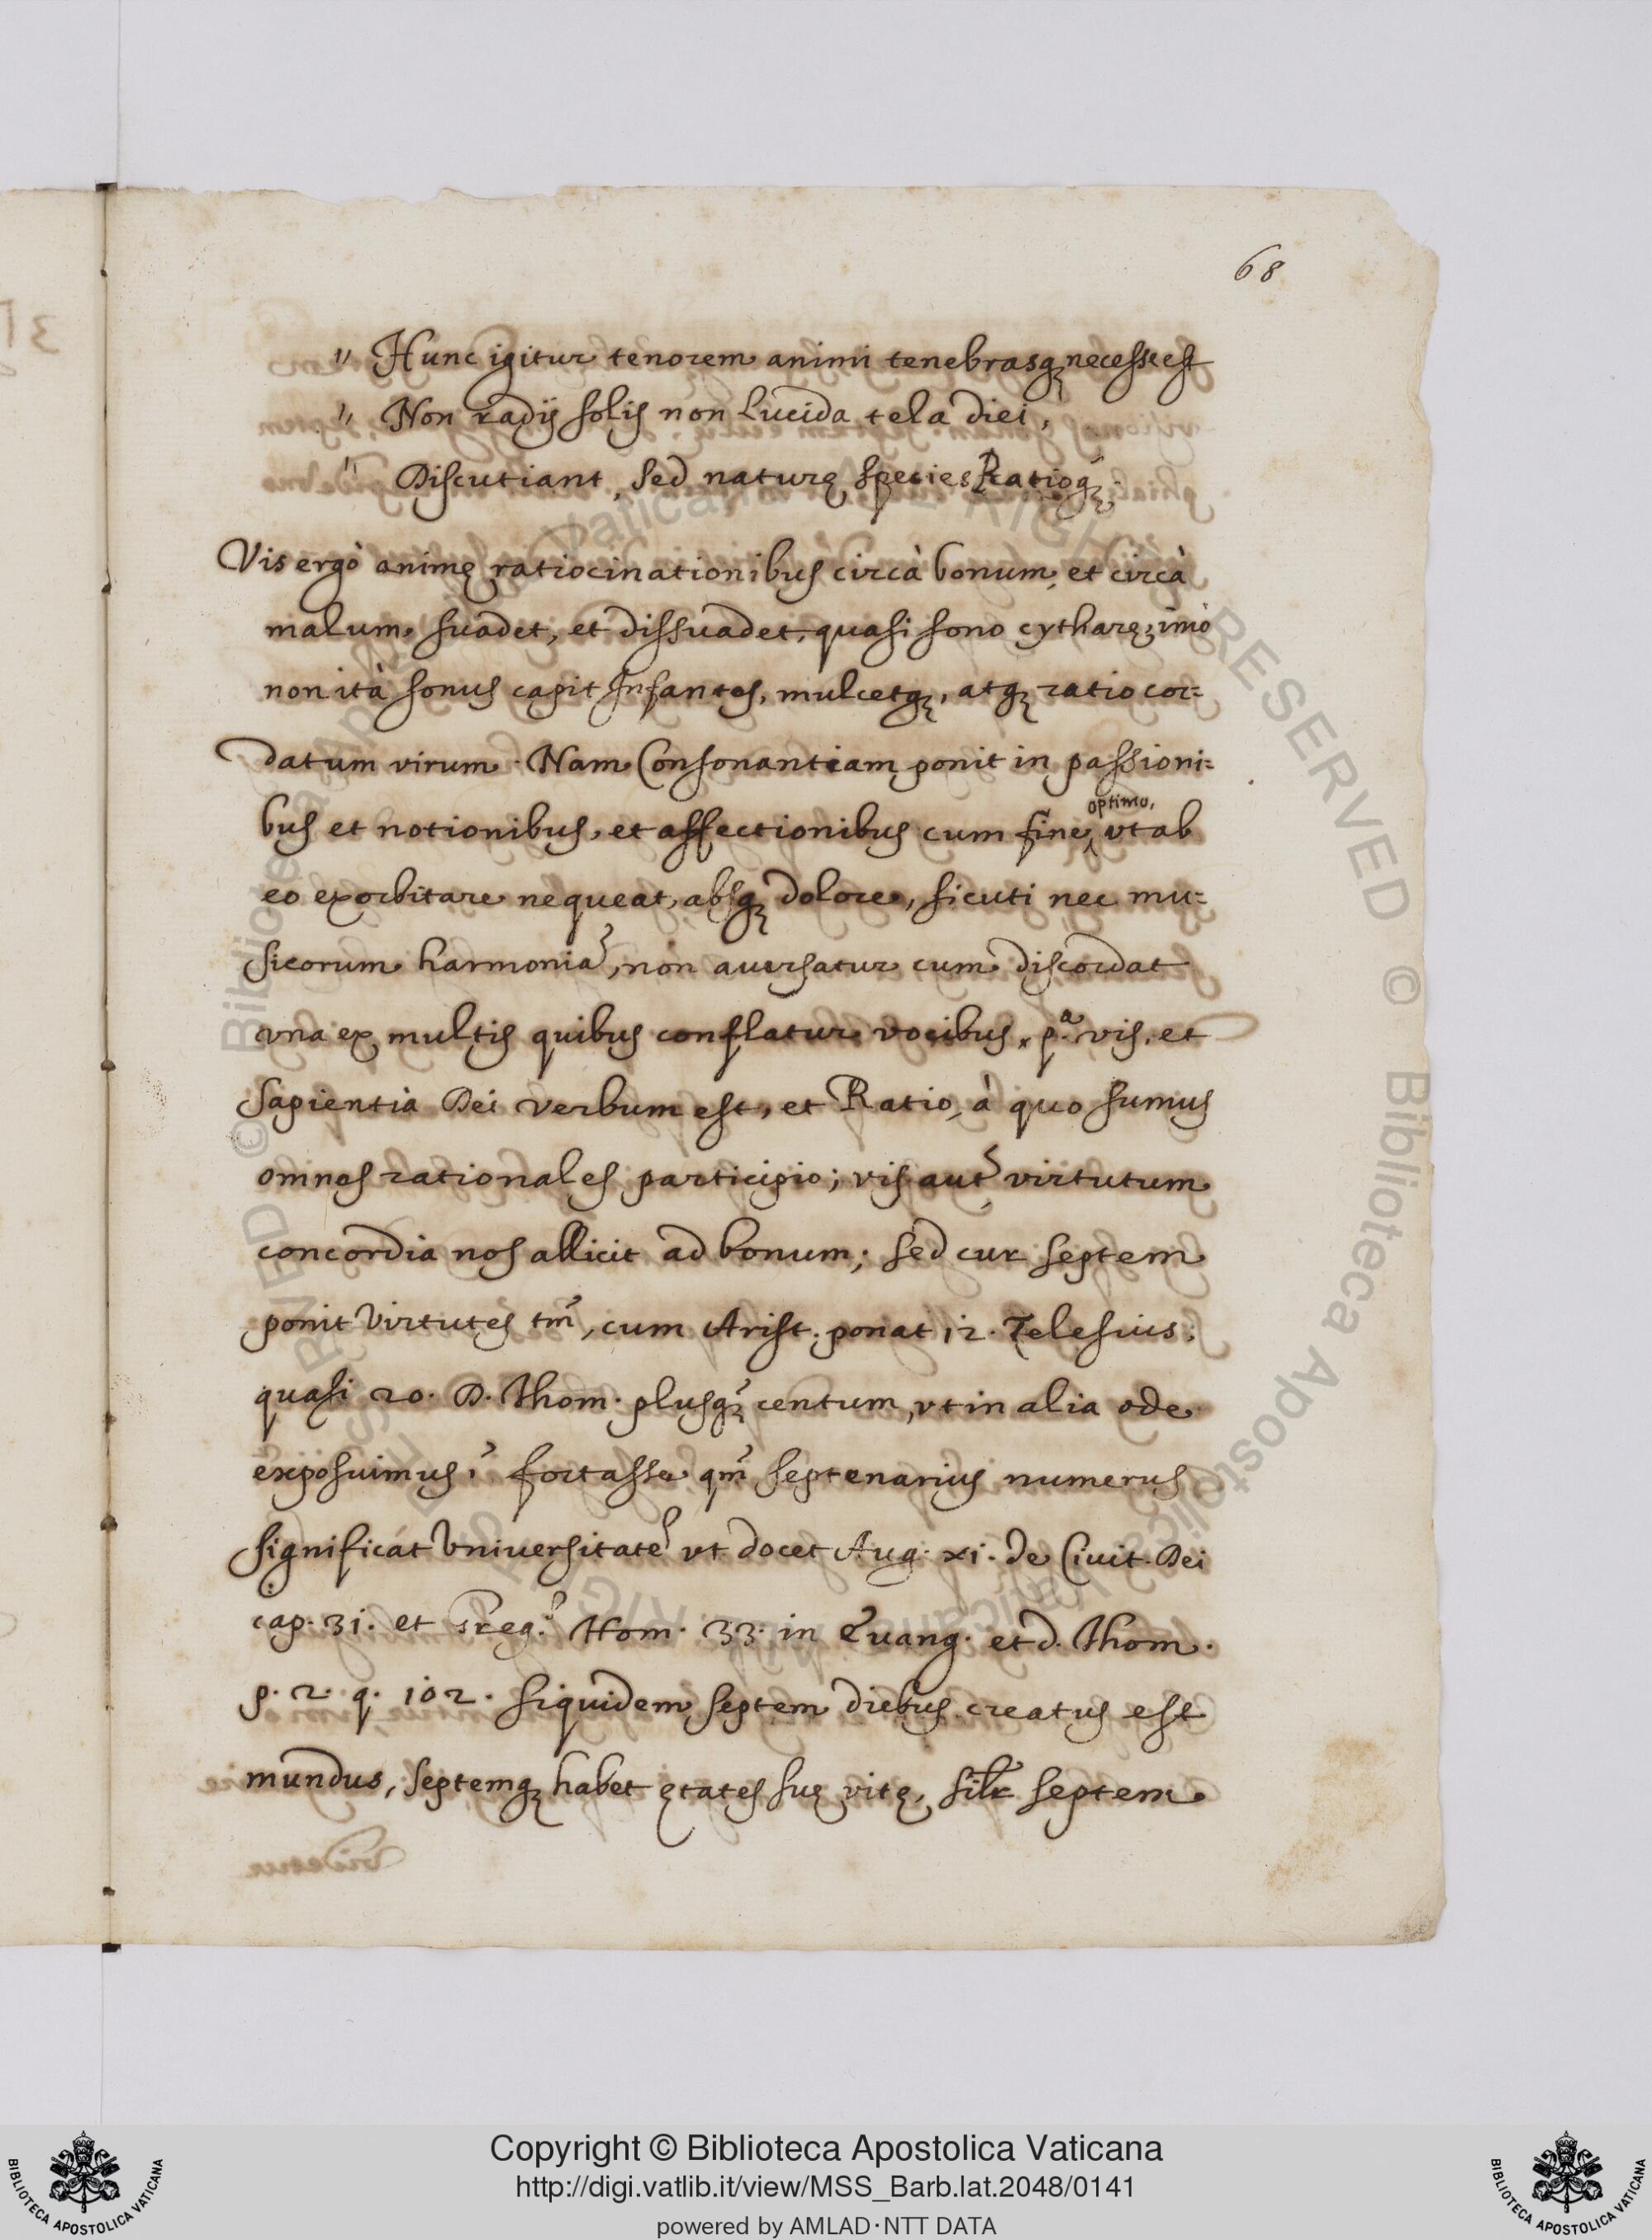 68
" Hunc igitur tenorem animi tenebrasq; necesse est
" Non radijs solis non lucida tela diei,
" Discutiant, sed naturę species Ratioq;.
Vis ergò animę ratiocinationibus circà bonum, et circà
malum, suadet, et dissuadet, quasi sono cytharę, imò
non ità sonus capit Infantes, mulcetq;, atq; ratio cor=
datum virum. Nam Consonantiam ponit in passioni=
bus et notionibus, et affectionibus cum fine optimo, vt ab
eo exorbitare nequeat, absq; dolore, sicuti nec mu=
sicorum harmonia, non auersatur cum discordat
vna ex multis quibus conflatur vocibus. pª. vis, et
sapientia Dei verbum est, et Ratio, à quo sumus
omnes rationales participio; vis aut̃ virtutum
concordia nos allicit ad bonum; sed cur septem
ponit Virtutes tm̃, cum Arist. ponat 12. Telesius
quasi 20. D. Thom. plusq̃ centum, vt in alia ode
exposuimus? fortasse qm̃ septenarius numerus
significat Vniuersitatẽ vt docet Aug. xi. de Ciuit. Dei
cap. 31. et Greg. Hom. 33. in Euang. et d. Thom.
p. 2. q. 102. siquidem septem diebus creatus est
mundus, septemq; habet ętates suę vitę, silr septem
© Biblioteca Apostolica Vaticana ALL RIGHTS RESERVED
Copyright © Biblioteca Apostolica Vaticana
http://digi.vatlib.it/view/MSS_Barb.lat.2048/0141
powered by AMLAD·NTT DATA
BIBLIOTECA APOSTOLICA VATICANA
BIBLIOTECA APOSTOLICA VATICANA